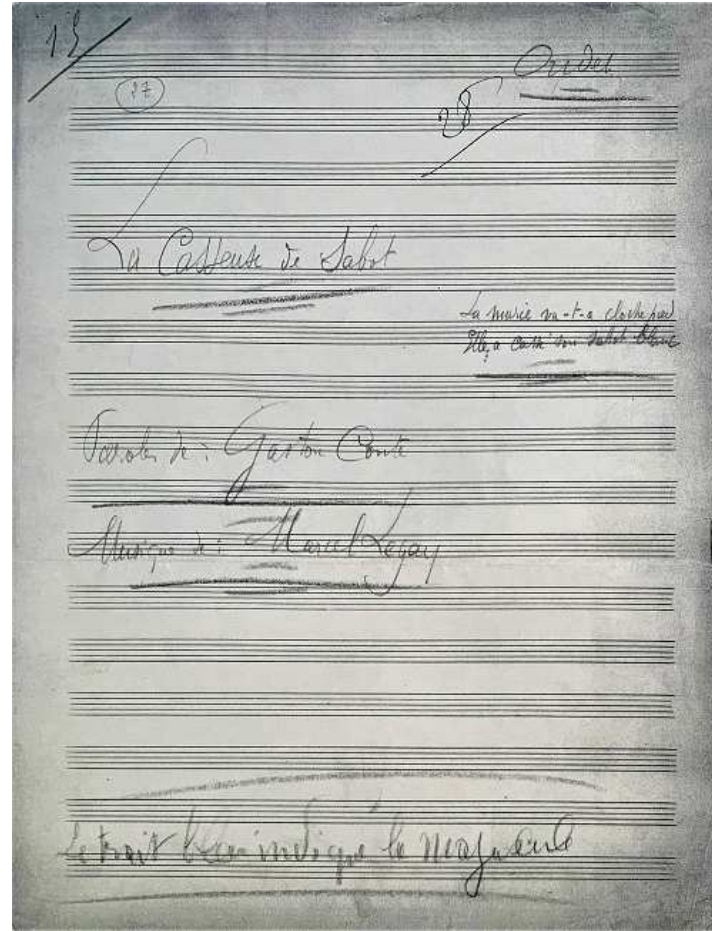 15
27
Ondet
28
La Casseuse de Sabot
La marie va-t-a cloche pied
Elle a cassé son sabot blanc
Paroles de : Gaston Couté
Musique de : Marcel Legay
Le trait bleu indique la majuscule